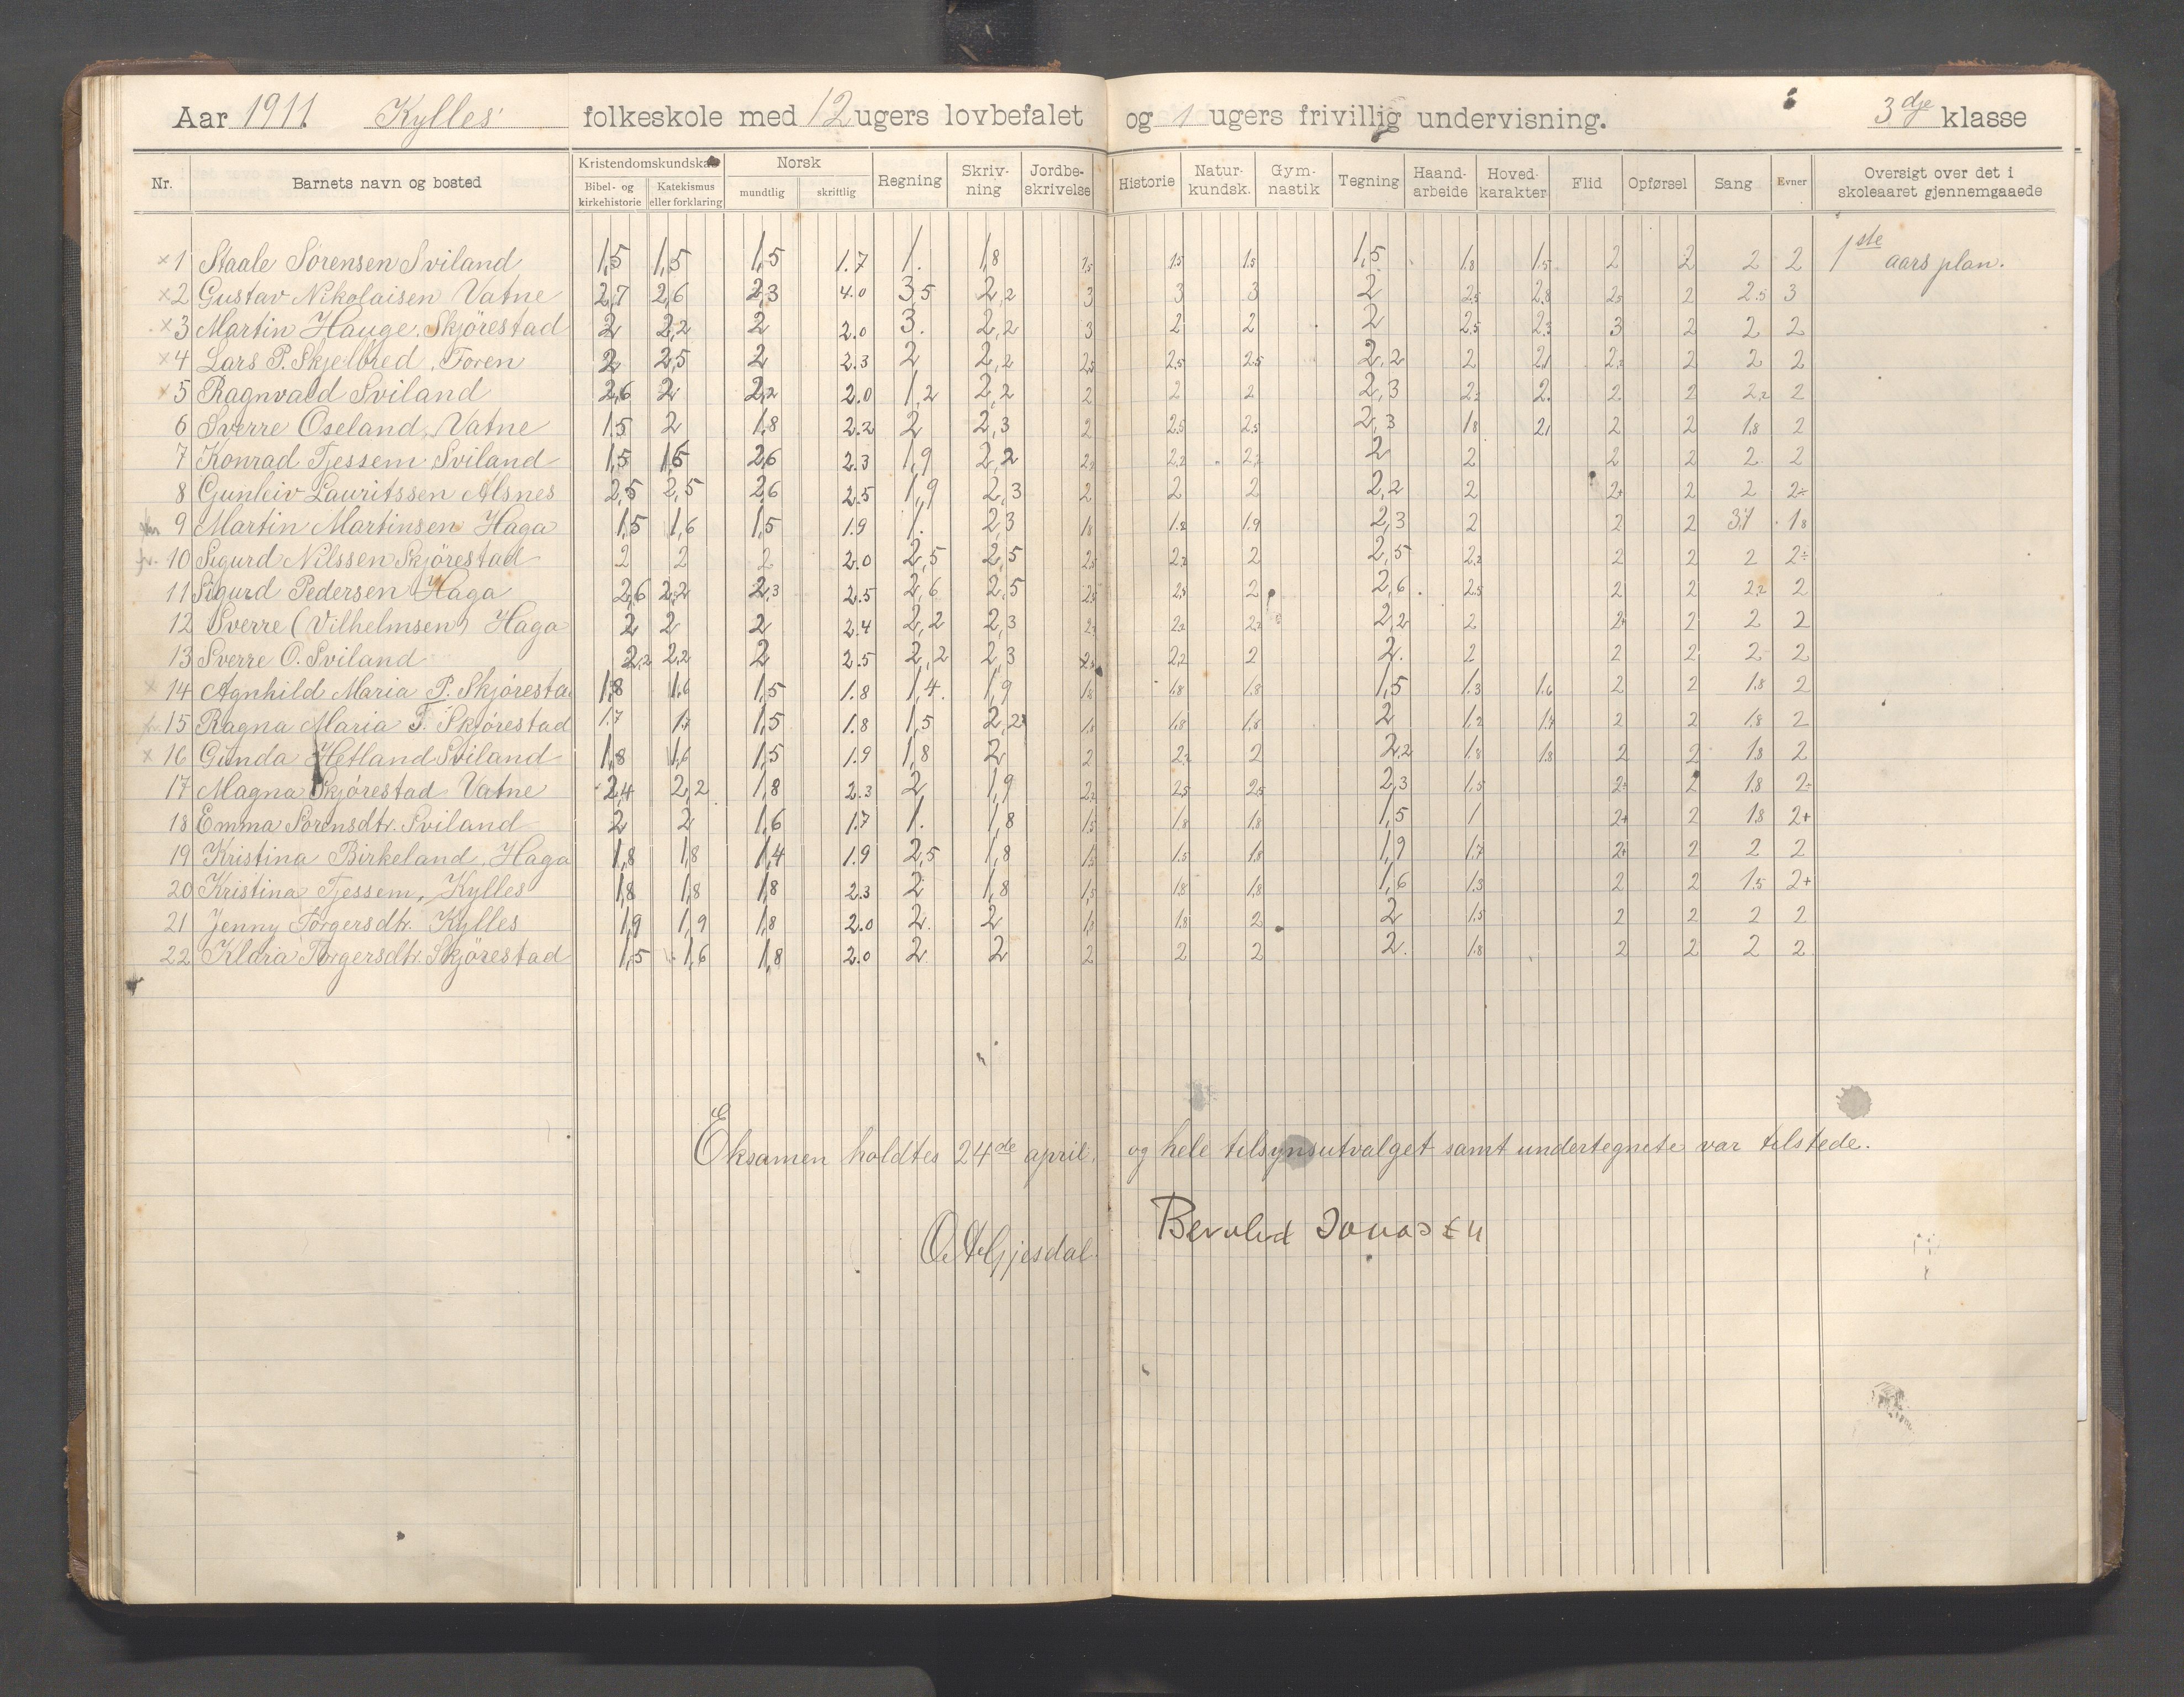 Aar 1911 Kylles folkeskole med 12 ugers lovbefalet og 1 ugers frivillig undervisning. 3dje klasse
Nr. Barnets navn og bosted Kristendomskundskab Norsk Regning Skriv-ning Jordbe-skrivelse Historie Natur-kundsk. Gym-nastik Tegning Haand-arbeide Hoved-karakter Flid Opførsel Sang Evner Oversigt over det i skoleaaret gjennemgaaede
Bibel- og kirkehistorie Katekismus eller forklaring mundtlig skriftlig
×1 Staale Sørensen Sviland 1,5 1,5 1,5 1.7 1. 1,8 1,5 1.5 1.5 1,5 1.8 1.5 2 2 2 2 1ste aars plan.
×2 Gustav Nikolaisen Vatne 2,7 2,6 2,3 4.0 3,5 2,2 3 3 3 2 2.5 2.8 2.5 2 2.5 3
×3 Martin Hauge Skjørestad 2 2,2 2 2.0 3. 2,2 3 2 2 2 2.5 2.3 3 2 2 2
×4 Lars P. Skjelbred, Foren 2 2,5 2 2.3 2 2,2 2,5 2,5 2.5 2,2 2 2,1 2 2 2
×5 Ragnvald Sviland 2,6 2 2,2 2.0 1,2 2,2 2 2 2 2,3 2. 2 2 2,2 2
6 Sverre Oseland, Vatne 1,5 2 1,8 2.2 2 2,3 2 2.5 2.5 2,3 1.8 2,1 2 2 1.8 2
7 Konrad Tjessem Sviland 1,5 1,5 2,6 2.3 1,9 2,2 2,2 2,2 2,2 2 2 2 2 2 2
8 Gunleiv Lauritssen Alsnes 2,5 2,5 2,6 2.5 1,9 2,3 2 2 2 2,2 2 2+ 2 2 2÷
9 Martin Martinsen Haga 1,5 1,6 1,5 1.9 1. 2,3 1.8 1.8 1.9 2,3 2 2 2 3,1 1.8
10 Sigurd Nilssen Skjørestad 2 2 2 2.0 2,5 2,5 2,5 2,2 2 2,5 2,2 2 2 2 2÷
11 Sigurd Pedersen Haga 2,6 2,2 2,3 2.5 2,6 2,5 2,5 2,5 2 2,6 2.5 2 2 2,2 2
12 Sverre (Vilhelmsen) Haga 2 2 2 2.4 2,2 2,3 2,2 2,2 2,2 2,2 2 2+ 2 2 2
13 Sverre O. Sviland 2,2 2,2 2 2.5 2,2 2,3 2,5 2,2 2 2. 2 2 2 2 2
× 14 Agnhild Maria P. Skjøresta 1,8 1,6 1,5 1.8 1,4. 1,9 1,8 1,8 1,8 1,5 1.3 1.6 2 2 1.8 2
15 Ragna Maria T. Skjørestad 1.7 1.7 1,5 1.8 1,5 2,2 1,8 1,8 1,8 2 1.2 1.7 2 2 1.8 2
× 16 Gunda Hetland Sviland 1,8 1,6 1,5 1.9 1,8 2 2 2,2 2 2,2 1.8 1.8 2 2 1.8 2
17 Magna Skjørestad Vatne 2,4 2,2 1,8 2.3 2 1,9 2,2 2,5 2,5 2,3 1.5 2÷ 2 1.8 2÷
18 Emma Sørensdtr. Sviland 2 2 1,6 1.7 1. 1,8 1,5 1,8 1,8 1,5 1 2+ 2 1.8 2+
19 Kristina Birkeland, Haga 1,8 1,8 1,4 1.9 2,5 1,8 1,5 1.5 1,8 1,9 1.7 2+ 2 2 2
20 Kristina Tjessem, Kylles 1,8 1,8 1,8 2.3 2 1,8 1,5 1,8 1,8 1,6 1.3 2 2 1.5 2+
21 Jenny Torgersdtr. Kylles 1,9 1,9 1,8 2.0 2. 2 1,8 1.8 2 2 1.5 2 2 2 2
22 Klara Torgersdtr. Skjørestad 1,5 1,6 1,8 2.0 2. 2 2 2 2 2. 1.8 2 2 2 2
Eksamen holdtes 24de april, og hele tilsynsutvalget samt undertegnete var tilstede.
O. A. Gjesdal Bernhd Jonassen